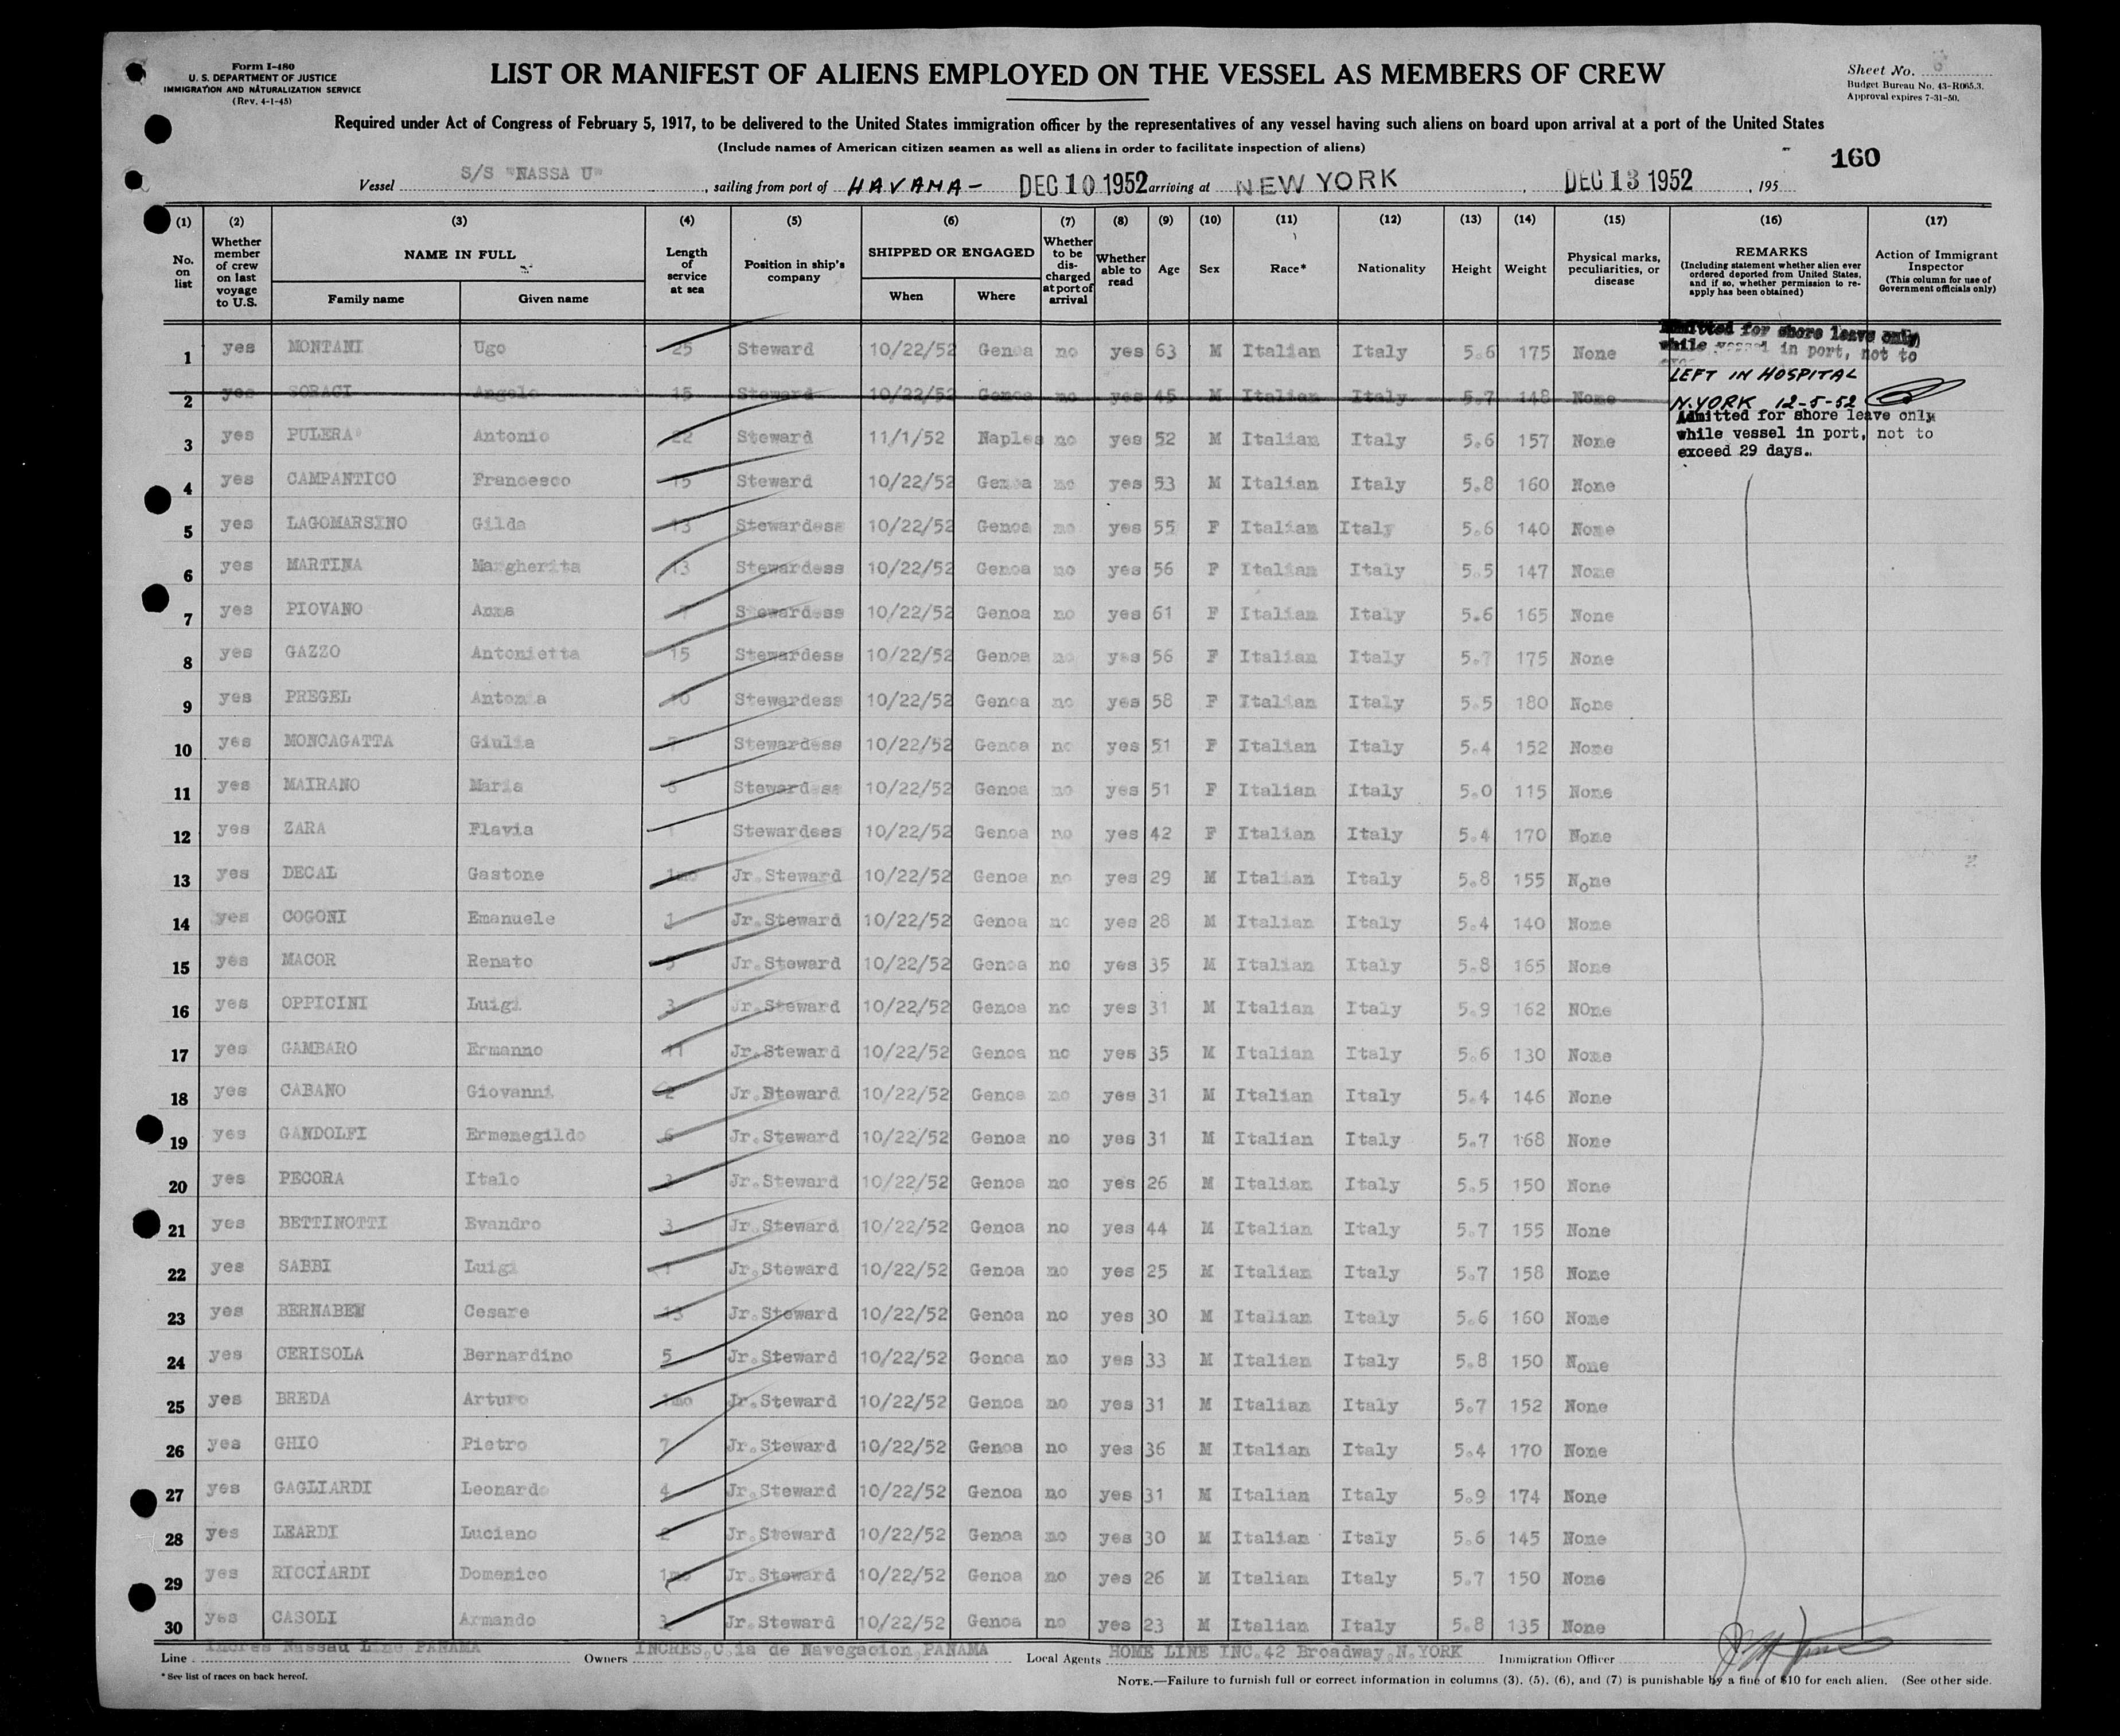 Form I-480
U. S. DEPARTMENT OF JUSTICE
IMMIGRATION AND NATURALIZATION SERVICE
(Rev. 4-1-45)
LIST OR MANIFEST OF ALIENS EMPLOYED ON THE VESSEL AS MEMBERS OF CREW
Sheet No.
Budget Bureau No. 43-R065.3.
Approval expires 7-31-50.
Required under Act of Congress of February 5, 1917, to be delivered to the United States immigration officer by the representatives of any vessel having such aliens on board upon arrival at a port of the United States
(Include names of American citizen seamen as well as aliens in order to facilitate inspection of aliens)
160
Vessel S/S "NASSA U" , sailing from port of HAVANA- DEC 10 1952 arriving at NEW YORK , DEC 13 1952 , 195
(1) (2) (3) (4) (5) (6) (7) (8) (9) (10) (11) (12) (13) (14) (15) (16) (17)
No. on list
Whether member of crew on last voyage to U.S.
NAME IN FULL
Family name
Given name
Length of service at sea
Position in ship's company
SHIPPED OR ENGAGED
When
Where
Whether to be discharged at port of arrival
Whether able to read
Age
Sex
Race*
Nationality
Height
Weight
Physical marks, peculiarities, or disease
REMARKS
(Including statement whether alien ever ordered deported from United States, and if so, whether permission to re-apply has been obtained)
Action of Immigrant Inspector
(This column for use of Government officials only)
1 yes MONTANI Ugo 25 Steward 10/22/52 Genoa no yes 63 M Italian Italy 5.6 175 None
Admitted for shore leave only
while vessel in port, not to
2 yes SORACI Angelo 15 Steward 10/22/52 Genoa no yes 45 M Italian Italy 5.7 148 None
LEFT IN HOSPITAL
N.YORK 12-5-52
3 yes PULERA Antonio 22 Steward 11/1/52 Naples no yes 52 M Italian Italy 5.6 157 None
Admitted for shore leave only
while vessel in port, not to
exceed 29 days.
4 yes CAMPANTICO Francesco 15 Steward 10/22/52 Genoa no yes 53 M Italian Italy 5.8 160 None
5 yes LAGOMARSINO Gilda 13 Stewardess 10/22/52 Genoa no yes 55 F Italian Italy 5.6 140 None
6 yes MARTINA Margherita 13 Stewardess 10/22/52 Genoa no yes 56 F Italian Italy 5.5 147 None
7 yes PIOVANO Anna Stewardess 10/22/52 Genoa no yes 61 F Italian Italy 5.6 165 None
8 yes GAZZO Antonietta 15 Stewardess 10/22/52 Genoa no yes 56 F Italian Italy 5.7 175 None
9 yes PREGEL Antonia 10 Stewardess 10/22/52 Genoa no yes 58 F Italian Italy 5.5 180 None
10 yes MONCAGATTA Giulia 7 Stewardess 10/22/52 Genoa no yes 51 F Italian Italy 5.4 152 None
11 yes MAIRANO Maria Stewardess 10/22/52 Genoa no yes 51 F Italian Italy 5.0 115 None
12 yes ZARA Flavia 1 Stewardess 10/22/52 Genoa no yes 42 F Italian Italy 5.4 170 None
13 yes DECAL Gastone 1mo Jr.Steward 10/22/52 Genoa no yes 29 M Italian Italy 5.8 155 None
14 yes COGONI Emanuele 1 Jr.Steward 10/22/52 Genoa no yes 28 M Italian Italy 5.4 140 None
15 yes MACOR Renato Jr.Steward 10/22/52 Genoa no yes 35 M Italian Italy 5.8 165 None
16 yes OPPICINI Luigi 3 Jr.Steward 10/22/52 Genoa no yes 31 M Italian Italy 5.9 162 NOne
17 yes GAMBARO Ermanno 11 Jr.Steward 10/22/52 Genoa no yes 35 M Italian Italy 5.6 130 None
18 yes CABANO Giovanni 2 Jr.Steward 10/22/52 Genoa no yes 31 M Italian Italy 5.4 146 None
19 yes GANDOLFI Ermenegildo 6 Jr.Steward 10/22/52 Genoa no yes 31 M Italian Italy 5.7 168 None
20 yes PECORA Italo 3 Jr.Steward 10/22/52 Genoa no yes 26 M Italian Italy 5.5 150 None
21 yes BETTINOTTI Evandro 3 Jr.Steward 10/22/52 Genoa no yes 44 M Italian Italy 5.7 155 None
22 yes SABBI Luigi 1 Jr.Steward 10/22/52 Genoa no yes 25 M Italian Italy 5.7 158 None
23 yes BERNABEM Cesare 13 Jr.Steward 10/22/52 Genoa no yes 30 M Italian Italy 5.6 160 None
24 yes CERISOLA Bernardino 5 Jr.Steward 10/22/52 Genoa no yes 33 M Italian Italy 5.8 150 None
25 yes BREDA Arturo 1mo Jr.Steward 10/22/52 Genoa no yes 31 M Italian Italy 5.7 152 None
26 yes GHIO Pietro 7 Jr.Steward 10/22/52 Genoa no yes 36 M Italian Italy 5.4 170 None
27 yes GAGLIARDI Leonardo 4 Jr.Steward 10/22/52 Genoa no yes 31 M Italian Italy 5.9 174 None
28 yes LEARDI Luciano 2 Jr.Steward 10/22/52 Genoa no yes 30 M Italian Italy 5.6 145 None
29 yes RICCIARDI Domenico 1mo Jr.Steward 10/22/52 Genoa no yes 26 M Italian Italy 5.7 150 None
30 yes CASOLI Armando 3 Jr.Steward 10/22/52 Genoa no yes 23 M Italian Italy 5.8 135 None
Line Incres Nassau Line PANAMA Owners INCRES,C.ia de Navegacion,PANAMA Local Agents HOME LINE INC.42 Broadway,N.YORK Immigration Officer
* See list of races on back hereof.
NOTE.—Failure to furnish full or correct information in columns (3), (5), (6), and (7) is punishable by a fine of $10 for each alien. (See other side.